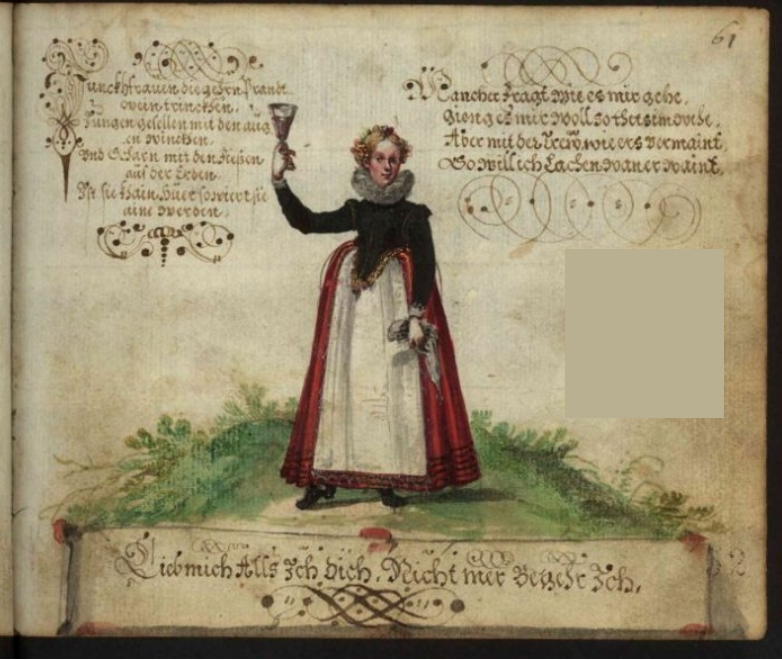 61
Junckhfrauen die gehrn Prandt
wein trinckhen,
Jungen gesellen mit den aug
en winckhen,
Vnd Scharn mit den Fießen
auf der Erden,
Ist sie kain Huer so wiert sie
aine werden,
Mancher Fragt wie es mir gehe,
Gieng es mir woll so thet es im wehe,
Aber mit der Trew, wie ers vermaint,
So will ich Lachen wan er waint,
Lieb mich Alls Ich Dich, Nicht mer Beger Ich,